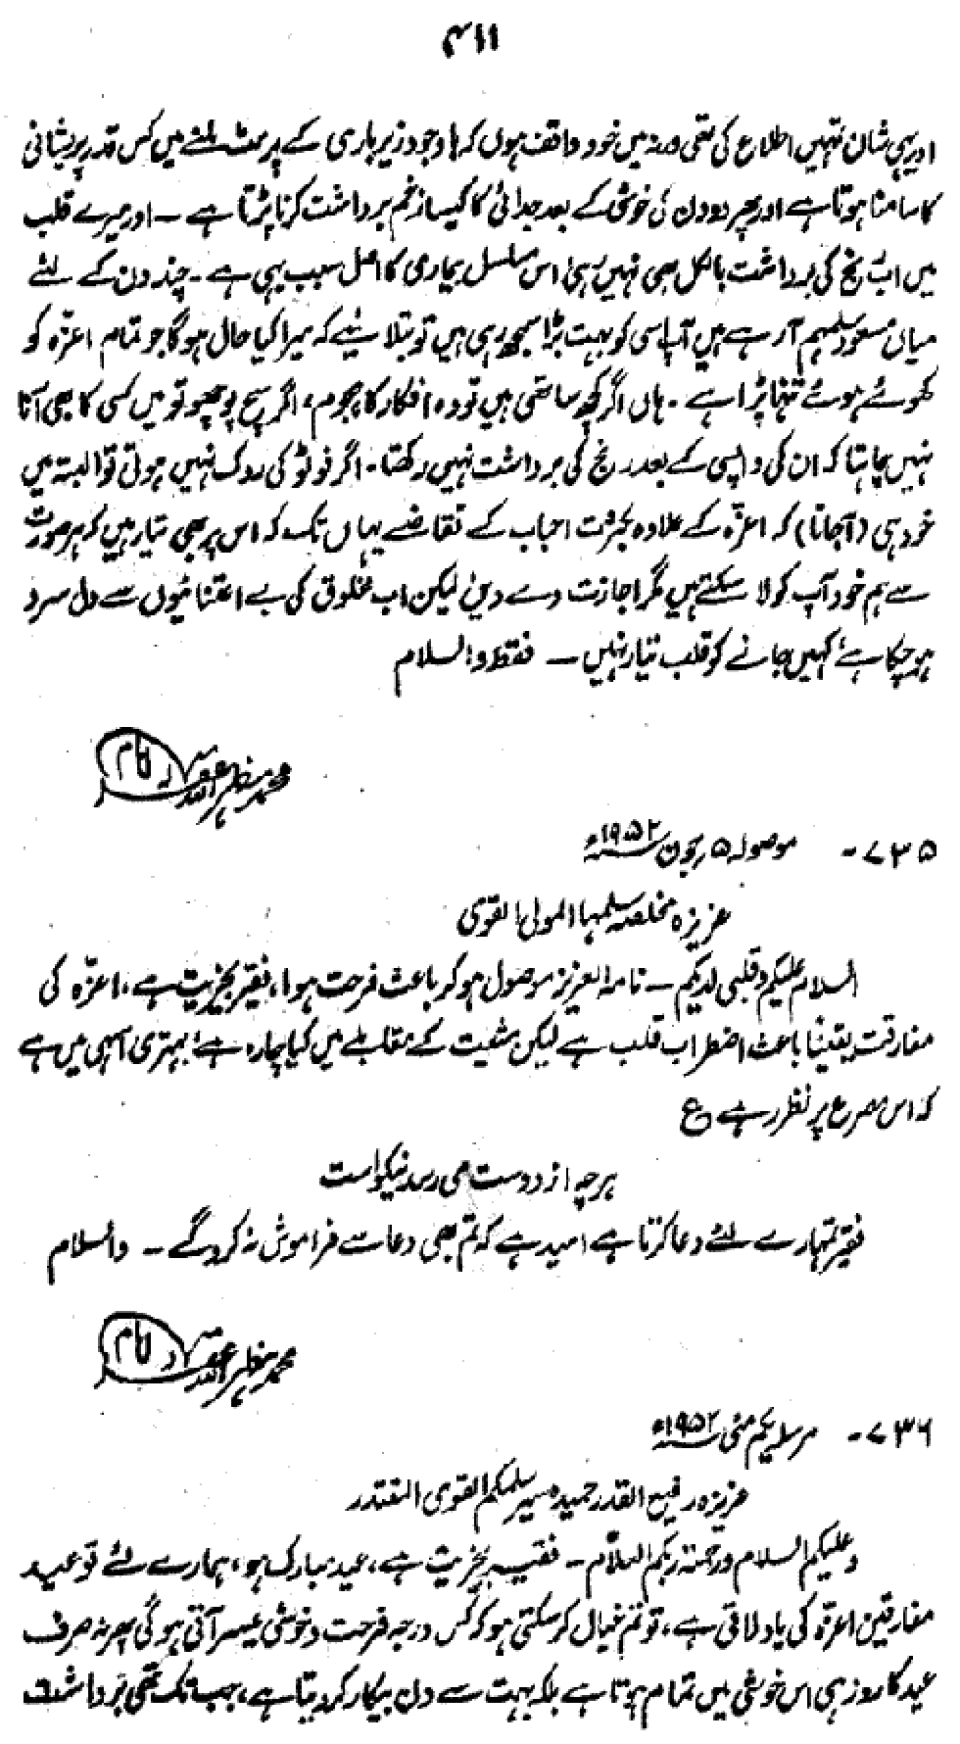 ۴۱۱
اور یہی شان تمہیں اطلاع کی تھی ورنہ میں خود واقف ہوں کہ باوجود زیر باری کے پرمٹ ملنے میں کس قدر پریشانی
کا سامنا ہوتا ہے اور پھر دو دن کی خوشی کے بعد جدائی کا کیسا زخم برداشت کرنا پڑتا ہے ۔ اور میرے قلب
میں اب رنج کی برداشت بالکل بھی نہیں رہی، اس مسلسل بیماری کا اصل سبب یہی ہے ۔ چند دن کے لئے
میاں مسعود سلمہم آ رہے ہیں آپ اسی کو بہت بڑا سمجھ رہی ہیں تو بتلائیے کہ میرا کیا حال ہوگا جو تمام اعزّہ کو
کھوئے ہوئے تنہا پڑا ہے ۔ ہاں اگر کچھ ساتھی ہیں تو وہ افکار کا ہجوم، اگر سچ پوچھو تو میں کسی کا بھی آنا
نہیں چاہتا کہ ان کی واپسی کے بعد رنج کی برداشت نہیں رکھتا۔ اگر فوٹو کی روک نہیں ہوتی تو البتہ میں
خود ہی (آجاتا) کہ اعزّہ کے علاوہ بکثرت احباب کے تقاضے یہاں تک کہ اس پر بھی تیار ہیں کہ ہر صورت
سے ہم خود آپ کو لا سکتے ہیں مگر اجازت دے دیں لیکن اب مخلوق کی بے اعتنائیوں سے دل سرد
ہو چکا ہے کہیں جانے کو قلب تیار نہیں ۔ فقط والسلام
محمد مظہر اللہ
۷۳۵ ۔ موصولہ ۵ر جون ۱۹۵۲ء
عزیزہ مخلصہ سلمہا المولی القوی
السلام علیکم و قلبی لدیکم ۔ نامۃ العزیز موصول ہو کر باعث فرحت ہوا، فقیر بخیریت ہے، اعزّہ کی
مفارقت یقیناً باعث اضطراب قلب ہے لیکن مشیت کے مقابلے میں کیا چارہ ہے؛ بہتری اسہی میں ہے
کہ اس مصرع پر نظر رہے ع
ہر چہ از دوست می رسد نیکو است
فقیر تمہارے لئے دعا کرتا ہے امید ہے کہ تم بھی دعا سے فراموش نہ کرو گے ۔ والسلام
محمد مظہر اللہ
۷۳۶ ۔ مرسلہ یکم مئی ۱۹۵۲ء
عزیزہ رفیع القدر حمیدہ سیر سلمکم القوی المقتدر
وعلیکم السلام ورحمۃ ربکم السلام ۔ فقیر بخیریت ہے، عید مبارک ہو، ہمارے لئے تو عید
مفارقین اعزّہ کی یاد لاتی ہے، تو تم خیال کر سکتی ہو کہ کس درجہ فرحت و خوشی میسر آتی ہوگی پھر نہ صرف
عید کا روز ہی اس خوشی میں تمام ہوتا ہے بلکہ بہت سے دن بیکار کر دیتا ہے، جب تک تھی برداشت